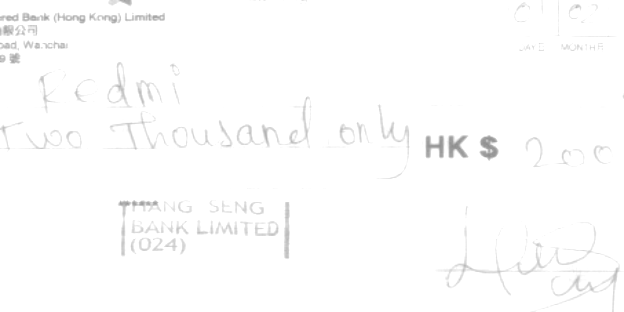 red Bank (Hong Kong) Limited
限公司
oad, Wanchai
9 號
DATE MONTH
Redmi
Two Thousand only HK $ 200
HANG SENG
BANK LIMITED
(024)